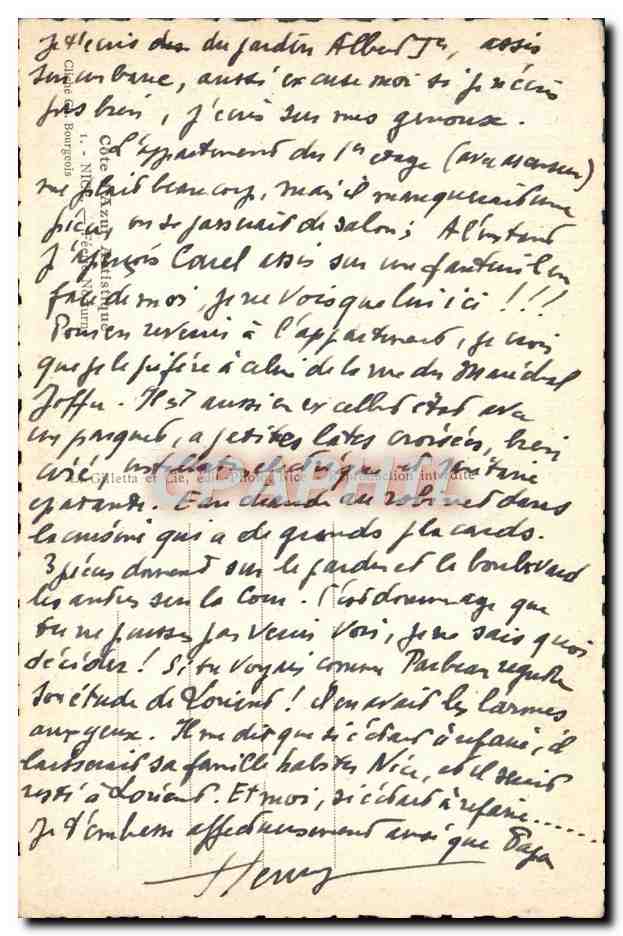 Je t'écris ds du jardin Albert Ier, assis
sur un banc, aussi excuse moi si je n'écris
pas bien, j'écris sur mes genoux.
L'appartement du 1er étage (avec ascenseur)
me plait beaucoup, mais il manquerait une
pièce, on se passerait de salon; A l'instant
j'aperçois Carel assis sur un fauteuil en
face de moi, je ne vois que lui ici !!!
Pour en revenir à l'appartement, je crois
que je le préfère à celui de la rue du Maréchal
Joffre. Il est aussi en excellent état avec
un parquet, a petites lates croisées, bien
ciré, installation électrique et sanitaire
épatante. Eau chaude au robinet dans
la cuisine qui a de grands placards.
3 pièces donnent sur le jardin et le boulevard
les autres sur la cour. C'est dommage que
tu ne puisses pas venir voir, je ne sais quoi
décider! Si tu voyais comme regrette
son étude de Lorient! il en avait les larmes
aux yeux. Il me dit que si c'était à refaire, il
laisserait sa famille habiter Nice, et il serait
resté à Lorient. Et moi, si c'était à refaire......
Je t'embrasse affectueusement ainsi que Papa
Henry
Côte d'Azur Artistique
1. - NICE - Féerie Nocturne
Cliché Ch. Bourgeois
Gilletta et Cie, édit.-Photog. Nice - Reproduction interdite
CPAPHIL